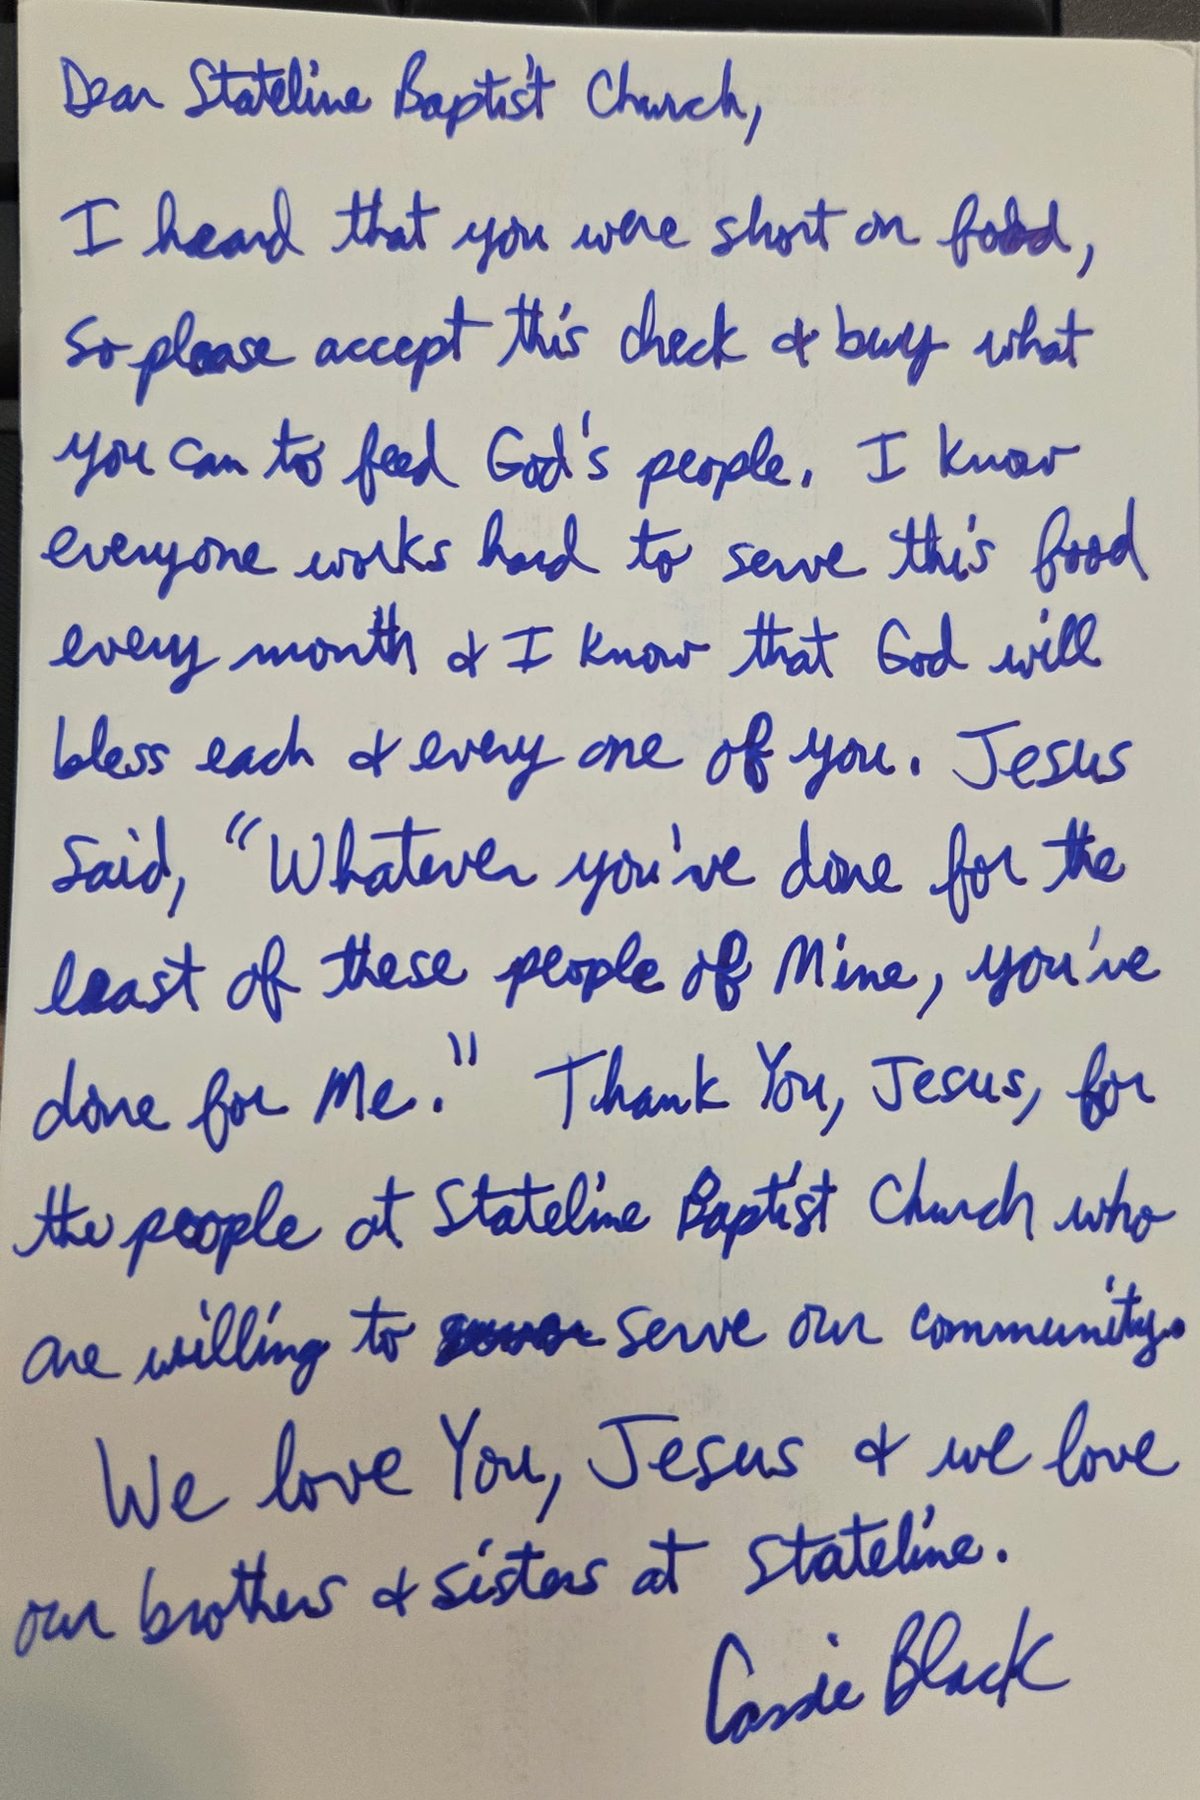 Dear Stateline Baptist Church,
I heard that you were short on food,
so please accept this check & buy what
you can to feed God's people. I know
everyone works hard to serve this food
every month & I know that God will
bless each & every one of you. Jesus
said, "Whatever you've done for the
least of these people of Mine, you've
done for Me." Thank You, Jesus, for
the people at Stateline Baptist Church who
are willing to serve our community.
We love You, Jesus & we love
our brothers & sisters at Stateline.
Cassie Black